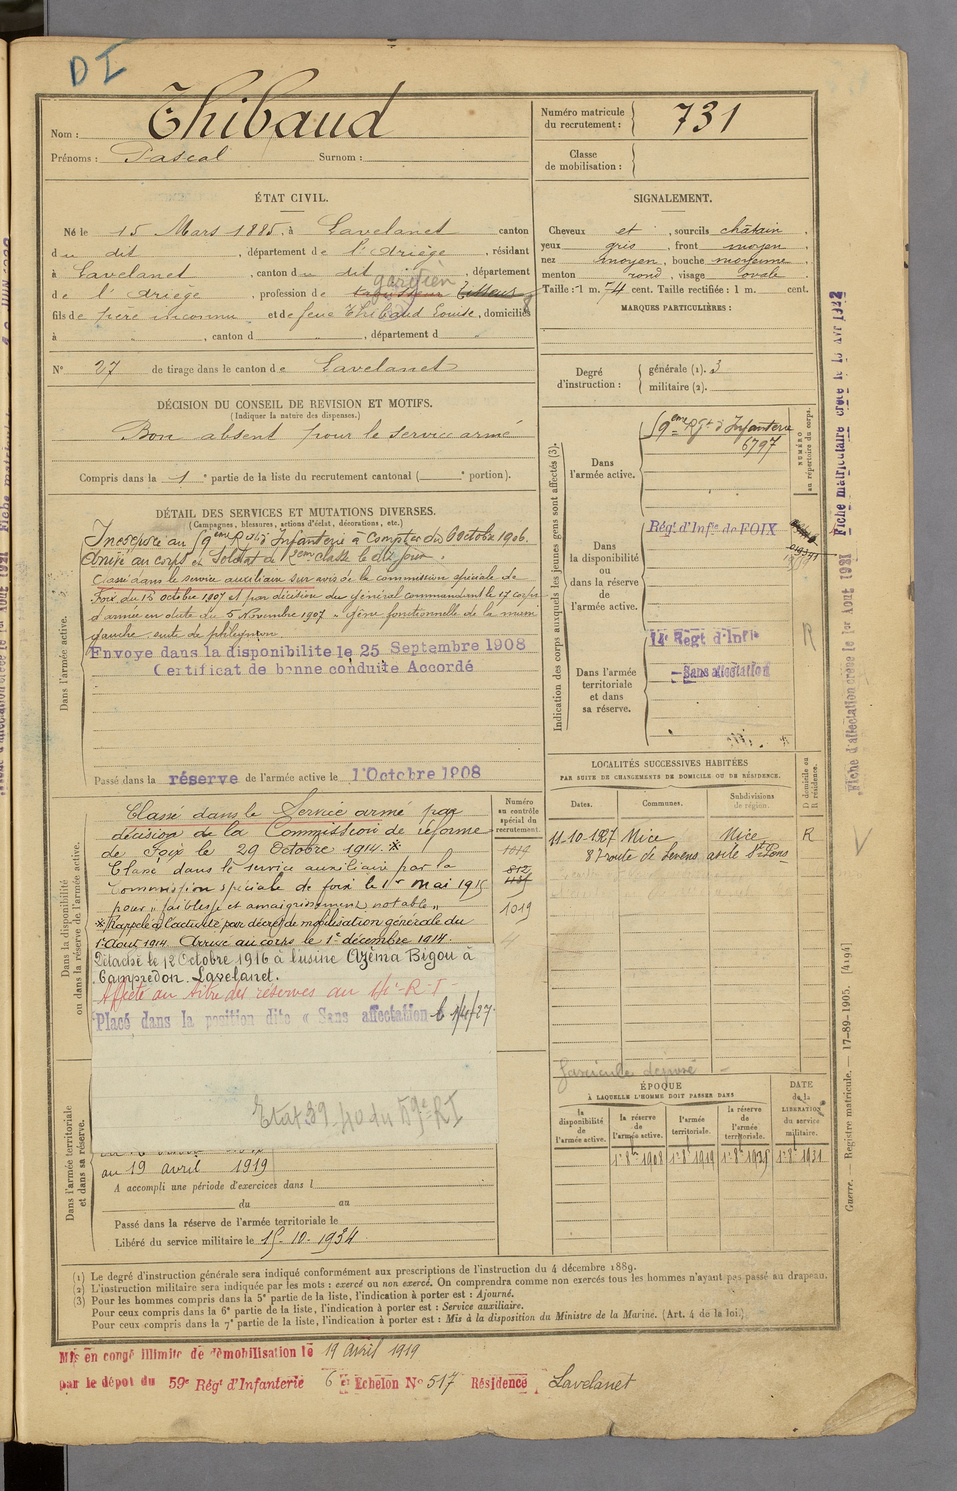 D I
Nom : Thibaud
Prénoms : Pascal Surnom :
Numéro matricule
du recrutement : 731
Classe
de mobilisation :
ÉTAT CIVIL.
Né le 15 Mars 1885, à Lavelanet canton
du dit, département de l'Ariège, résidant
à Lavelanet, canton du dit, département
de l'Ariège, profession de Tisseur
fils de père inconnu et de feue Thibaud Louise, domiciliés
à , canton d , département d
N° 27 de tirage dans le canton de Lavelanet
SIGNALEMENT.
Cheveux et , sourcils châtain
yeux gris , front moyen
nez moyen , bouche moyenne
menton rond , visage ovale
Taille : 1 m. 74 cent. Taille rectifiée : 1 m. cent.
MARQUES PARTICULIÈRES :
Degré
d'instruction :
générale (1). 3
militaire (2).
DÉCISION DU CONSEIL DE REVISION ET MOTIFS.
(Indiquer la nature des dispenses.)
Bon absent pour le service armé
Compris dans la 1e partie de la liste du recrutement cantonal ( e portion).
DÉTAIL DES SERVICES ET MUTATIONS DIVERSES.
(Campagnes, blessures, actions d'éclat, décorations, etc.)
Dans l'armée active.
Incorporé au 59eme Rgt d'Infanterie à compter du 6 Octobre 1906.
Arrivé au corps et Soldat de 2eme classe le dit jour.
Classé dans le service auxiliaire sur avis de la commission spéciale de
Foix du 15 octobre 1907 et par décision du Général commandant le 17 corps
d'armée en date du 5 Novembre 1907 gêne fonctionnelle de la main
gauche suite de phlegmon.
Envoyé dans la disponibilité le 25 Septembre 1908
Certificat de bonne conduite Accordé
Passé dans la réserve de l'armée active le 1 Octobre 1908
Indication des corps auxquels les jeunes gens sont affectés (3).
NUMÉRO
au répertoire du corps.
Dans
l'armée active.
59eme Rgt d'Infanterie
6797
Dans
la disponibilité
ou
dans la réserve
de
l'armée active.
Régt d'Infie de FOIX
Dans l'armée
territoriale
et dans
sa réserve.
14 Régt d'Infie
Sans affectation
R
LOCALITÉS SUCCESSIVES HABITÉES
PAR SUITE DE CHANGEMENTS DE DOMICILE OU DE RÉSIDENCE.
D domicile ou
R résidence.
Dates. Communes. Subdivisions
de région.
11-10-1927 Nice Nice R
87 route de Levens asile St Pons
Dans la disponibilité
ou dans la réserve de l'armée active.
Numéro
au contrôle
spécial du
recrutement.
1019
812
1019
Classé dans le Service armé par
décision de la Commission de réforme
de Foix le 29 Octobre 1914. *
Classé dans le service auxiliaire par la
Commission spéciale de foix le 1er mai 1915
pour "faiblesse et amaigrissement notable"
* Rappelé à l'activité par décret de mobilisation générale du
1er Août 1914. Arrivé au corps le 1er décembre 1914.
Détaché le 12 Octobre 1916 à l'usine Azéma Bigou à
Campredon Lavelanet.
Affecté au titre des réserves au 14e R I
Placé dans la position dite « Sans affectation le 1/4/27
Etat 39-40 du 59e RI
fascicule déposé
Dans l'armée territoriale
et dans sa réserve.
au 19 avril 1919
A accompli une période d'exercices dans l
du au
Passé dans la réserve de l'armée territoriale le
Libéré du service militaire le 15-10-1934
ÉPOQUE
À LAQUELLE L'HOMME DOIT PASSER DANS
DATE
de la
LIBÉRATION
du service
militaire.
la
disponibilité
de
l'armée active.
la réserve
de
l'armée active.
l'armée
territoriale.
la réserve
de
l'armée
territoriale.
1er 8bre 1908 1er 8bre 1919 1er 8bre 1925 1er 8bre 1931
(1) Le degré d'instruction générale sera indiqué conformément aux prescriptions de l'instruction du 4 décembre 1889.
(2) L'instruction militaire sera indiquée par les mots : exercé ou non exercé. On comprendra comme non exercés tous les hommes n'ayant pas passé au drapeau.
(3) Pour les hommes compris dans la 5e partie de la liste, l'indication à porter est : Ajourné.
Pour ceux compris dans la 6e partie de la liste, l'indication à porter est : Service auxiliaire.
Pour ceux compris dans la 7e partie de la liste, l'indication à porter est : Mis à la disposition du Ministre de la Marine. (Art. 4 de la loi.)
Mis en congé illimité de démobilisation le 19 avril 1919
par le dépôt du 59e Régt d'Infanterie 6e Echelon N° 517 Résidence Lavelanet
Fiche matriculaire créée le 15 Avr 1922
Fiche d'affectation créée le 1er Août 1921
Guerre. — Registre matricule. — 17-89-1905. [4194]